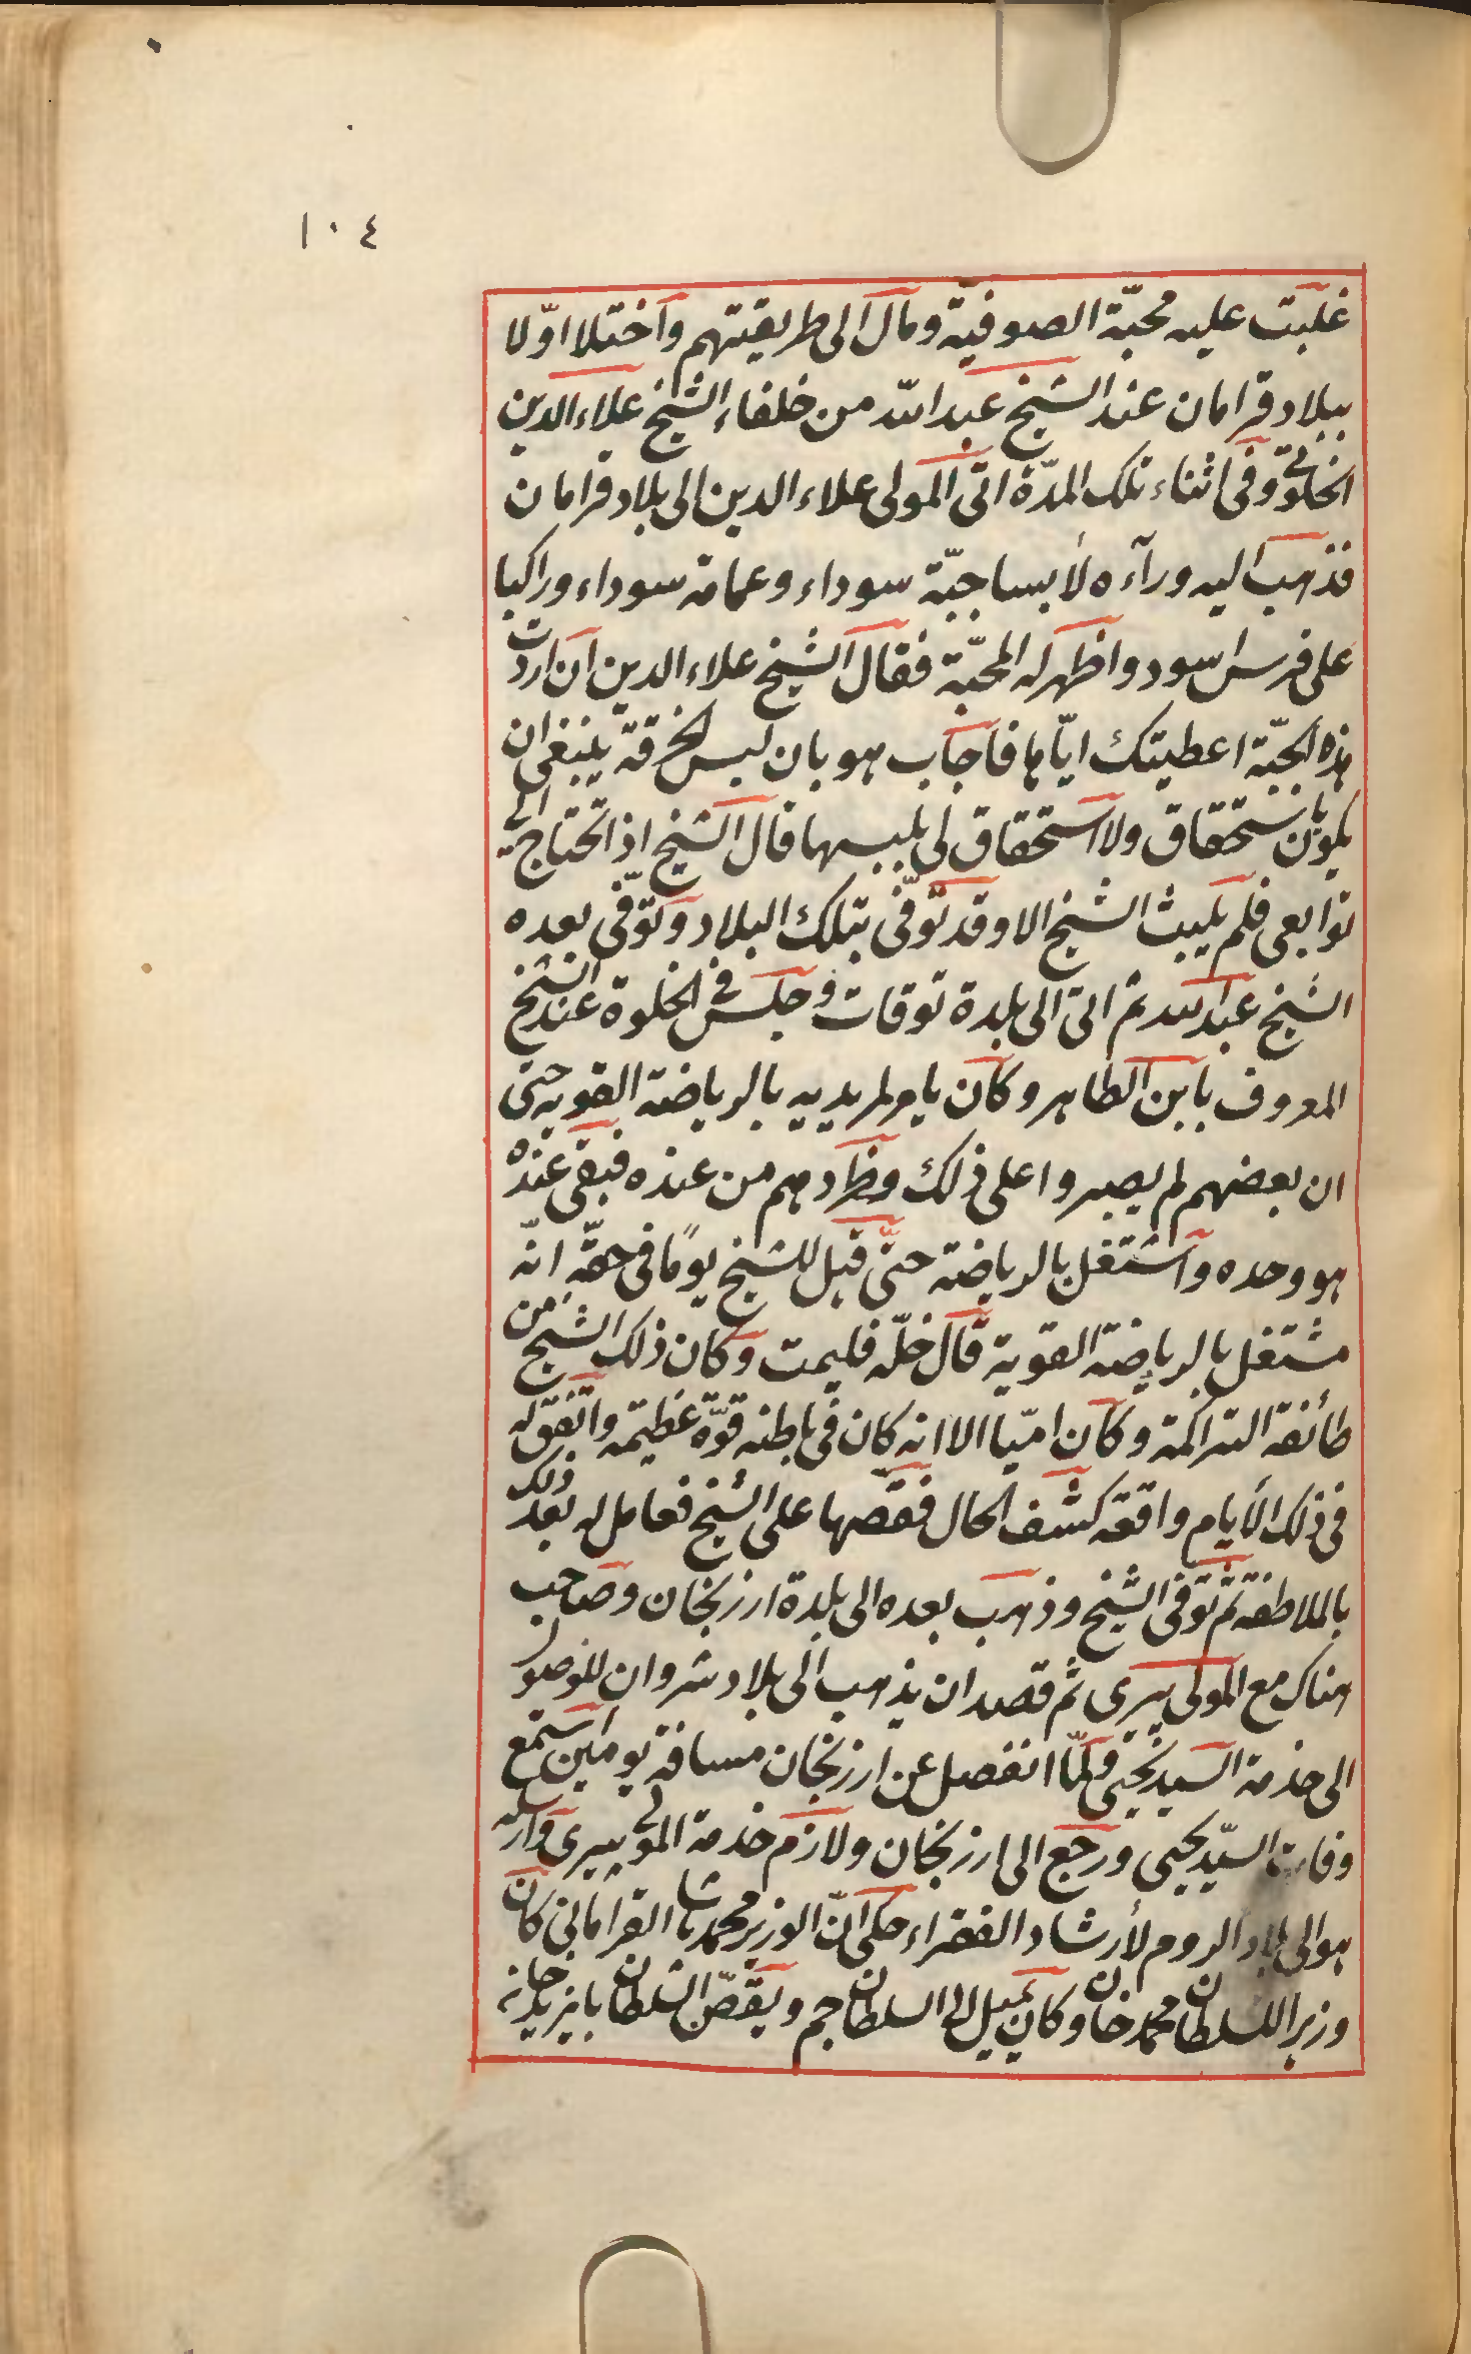 ١٠٤
غلبت عليه محبّة الصوفية ومال الى طريقتهم واختلا اوّلا
ببلاد قرامان عند الشيخ عبد الله من خلفاء الشيخ علاء الدين
الخلوتى وفى اثناء تلك المدّة اتى المولى علاء الدين الى بلاد قرامان
فذهب اليه ورآءه لابسا جبّة سوداء وعمامة سوداء وراكبا
على فرس اسود واظهر له المحبّة فقال الشيخ علاء الدين ان اردت
هذه الجبّة اعطيتك ايّاها فاجاب هو بان لبس الخرقة ينبغى ان
يكون باستحقاق ولا استحقاق لى بلبسها قال الشيخ اذا تحتاج الى
توابعى فلم يلبث الشيخ الا وقد توفّى بتلك البلاد وتوفى بعده
الشيخ عبد الله ثم اتى الى بلدة توقات وجلس فى الخلوة عند الشيخ
المعروف بابن الطاهر وكان يامر لمريديه بالرياضة القوية حتى
ان بعضهم لم يصبروا على ذلك وطردهم من عنده فبقى عنده
هو وحده واشتغل بالرياضة حتى قيل للشيخ يومًا فى حقّه انّه
مشتغل بالرياضة القوية قال خلّه فليمت وكان ذلك الشيخ من
طائفة التراكمة وكان امّيا الا انه كان فى باطنه قوّة عظيمة واتّفق له
فى ذلك الأيام واقعة كشف الحال فقصها على الشيخ فعامل له بعد ذلك
بالملاطفة ثم توفى الشيخ وذهب بعده الى بلدة ارزنجان وصاحب
هناك مع المولى پيرى ثم قصد ان يذهب الى بلاد شروان للوصول
الى خدمة السيد يحيى ولمّا انفصل عن ارزنجان مسافة يومين استمع
وفات السيّد يحيى ورجع الى ارزنجان ولازم خدمة المولى پيرى وارسله
هو الى بلاد الروم لأرشاد الفقراء حكى انّ الوزير محمد پاشا القرامانى كان
وزير اللسلطان محمد خان وكان يميل الى السلطان جم ويقصّ السلطان بايزيد خان